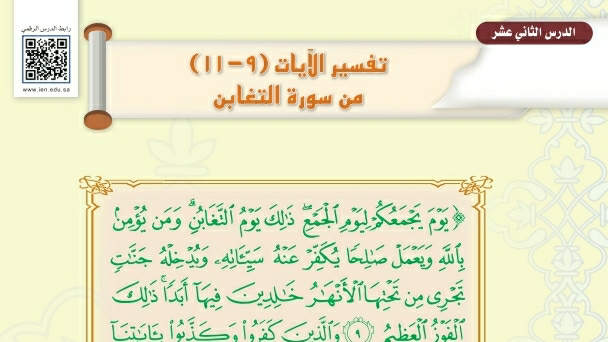 الدرس الثاني عشر
رابط الدرس الرقمي
www.ien.edu.sa
تفسير الآيات (٩-١١)
من سورة التغابن
﴿ يَوْمَ يَجْمَعُكُمْ لِيَوْمِ الْجَمْعِ ۖ ذَٰلِكَ يَوْمُ التَّغَابُنِ ۗ وَمَن يُؤْمِنۢ
بِاللَّهِ وَيَعْمَلْ صَـٰلِحًا يُكَفِّرْ عَنْهُ سَيِّـَٔاتِهِۦ وَيُدْخِلْهُ جَنَّـٰتٍ
تَجْرِى مِن تَحْتِهَا الْأَنْهَـٰرُ خَـٰلِدِينَ فِيهَآ أَبَدًا ۚ ذَٰلِكَ
الْفَوْزُ الْعَظِيمُ ﴿٩﴾ وَالَّذِينَ كَفَرُوا۟ وَكَذَّبُوا۟ بِـَٔايَـٰتِنَآ